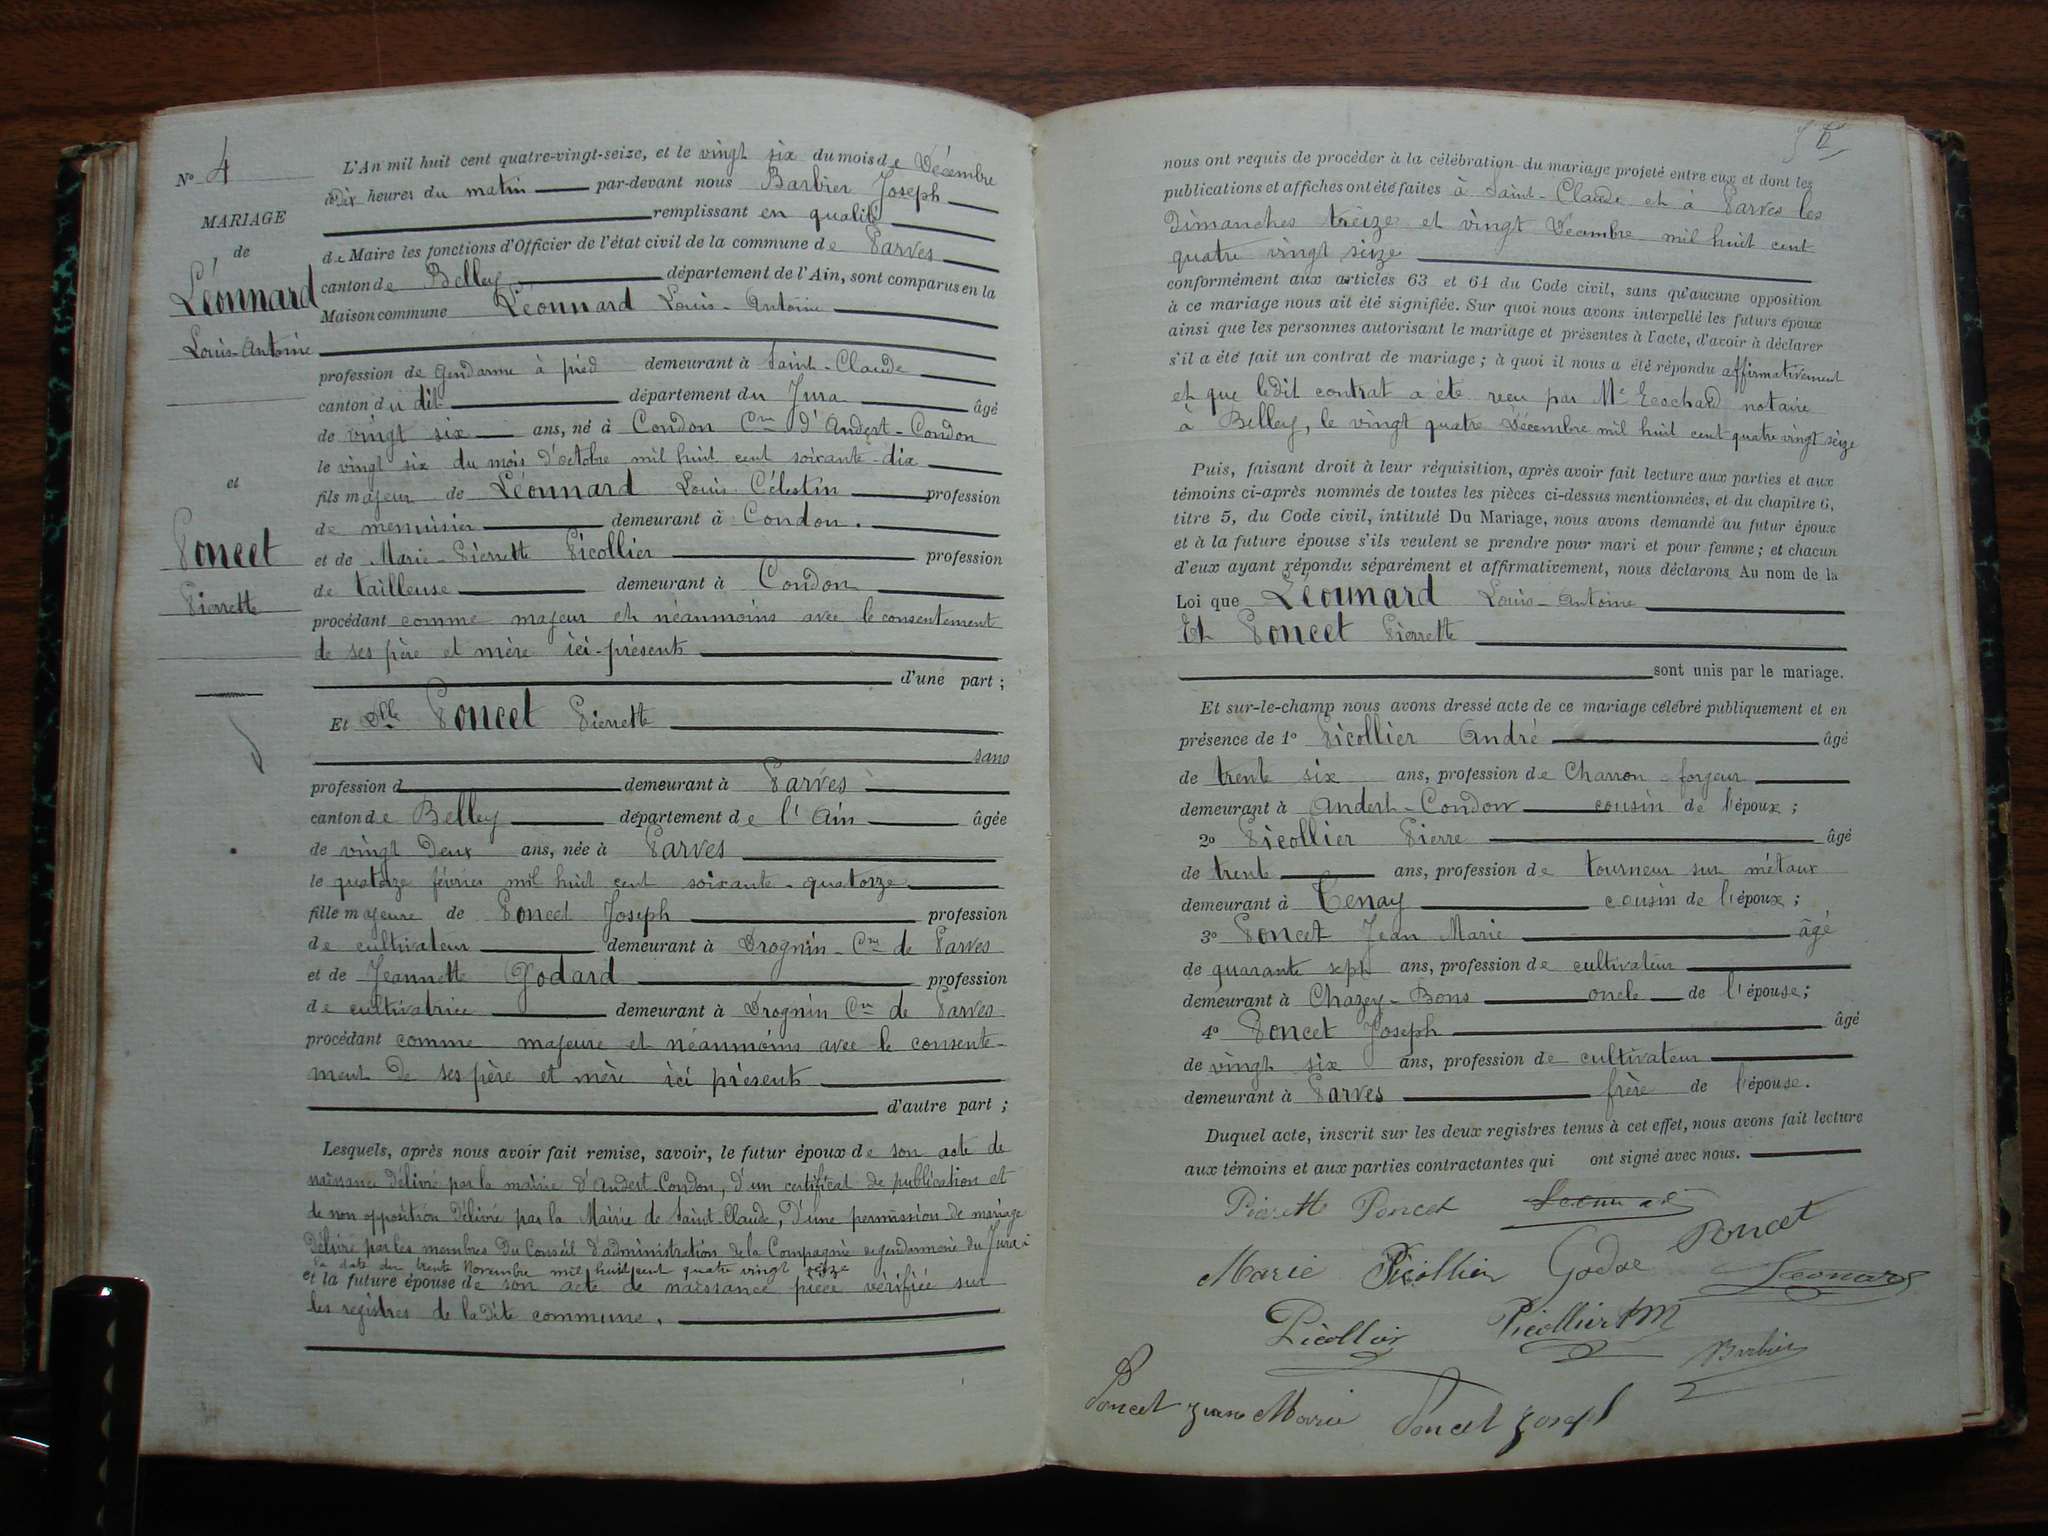 N° 4
MARIAGE
de
Léonnard
Louis-Antoine
et
Poncet
Pierrette
L'An mil huit cent quatre-vingt-seize, et le vingt six du mois de Décembre
à Dix heures du matin par-devant nous Barbier Joseph
remplissant en qualité
de Maire les fonctions d'Officier de l'état civil de la commune de Parves
canton de Belley département de l'Ain, sont comparus en la
Maison commune Léonnard Louis-Antoine
profession de Gendarme à pied demeurant à Saint-Claude
canton du dit département du Jura âgé
de vingt six ans, né à Condon Cne d'Andert-Condon
le vingt six du mois d'octobre mil huit cent soixante-dix
fils majeur de Léonnard Louis Célestin profession
de menuisier demeurant à Condon.
et de Marie-Pierrette Picollier profession
de tailleuse demeurant à Condon
procédant comme majeur et néanmoins avec le consentement
de ses père et mère ici-présents
d'une part ;
Et Dlle Poncet Pierrette
sans
profession d demeurant à Parves
canton de Belley département de l'Ain âgée
de vingt Deux ans, née à Parves
le quatorze février mil huit cent soixante-quatorze
fille majeure de Poncet Joseph profession
de cultivateur demeurant à Drognin Cne de Parves
et de Jeannette Godard profession
de cultivatrice demeurant à Drognin Cne de Parves
procédant comme majeure et néanmoins avec le consente-
ment de ses père et mère ici présents
d'autre part ;
Lesquels, après nous avoir fait remise, savoir, le futur époux de son acte de
naissance délivré par la mairie d'Andert-Condon, d'un certificat de publication et
de non opposition délivré par la Mairie de Saint-Claude, d'une permission de mariage
délivré par les membres du Conseil d'administration de la Compagnie de gendarmerie du Jura à
la date du trente Novembre mil huit cent quatre vingt seize
et la future épouse de son acte de naissance pièce vérifiée sur
les registres de la dite commune.
nous ont requis de procéder à la célébration du mariage projeté entre eux et dont les
publications et affiches ont été faites à Saint-Claude et à Parves les
Dimanches treize et vingt Décembre mil huit cent
quatre vingt seize
conformément aux articles 63 et 64 du Code civil, sans qu'aucune opposition
à ce mariage nous ait été signifiée. Sur quoi nous avons interpellé les futurs époux
ainsi que les personnes autorisant le mariage et présentes à l'acte, d'avoir à déclarer
s'il a été fait un contrat de mariage ; à quoi il nous a été répondu affirmativement
et que ledit contrat a été reçu par Me Ecochard notaire
à Belley, le vingt quatre Décembre mil huit cent quatre vingt seize
Puis, faisant droit à leur réquisition, après avoir fait lecture aux parties et aux
témoins ci-après nommés de toutes les pièces ci-dessus mentionnées, et du chapitre 6,
titre 5, du Code civil, intitulé Du Mariage, nous avons demandé au futur époux
et à la future épouse s'ils veulent se prendre pour mari et pour femme ; et chacun
d'eux ayant répondu séparément et affirmativement, nous déclarons Au nom de la
Loi que Léonnard Louis-Antoine
Et Poncet Pierrette
sont unis par le mariage.
Et sur-le-champ nous avons dressé acte de ce mariage célébré publiquement et en
présence de 1° Picollier André âgé
de trente six ans, profession de Charron-forgeur
demeurant à Andert-Condon cousin de l'époux ;
2° Picollier Pierre âgé
de trente ans, profession de tourneur sur métaux
demeurant à Tenay cousin de l'époux ;
3° Poncet Jean Marie âgé
de quarante sept ans, profession de cultivateur
demeurant à Chazey-Bons oncle de l'épouse ;
4° Poncet Joseph âgé
de vingt six ans, profession de cultivateur
demeurant à Parves frère de l'épouse.
Duquel acte, inscrit sur les deux registres tenus à cet effet, nous avons fait lecture
aux témoins et aux parties contractantes qui ont signé avec nous.
Pierrette Poncet Léonnard
Marie Picollier Godar Poncet
Léonard
Picollier Picollier Barbier
Poncet Jean Marie Poncet Joseph